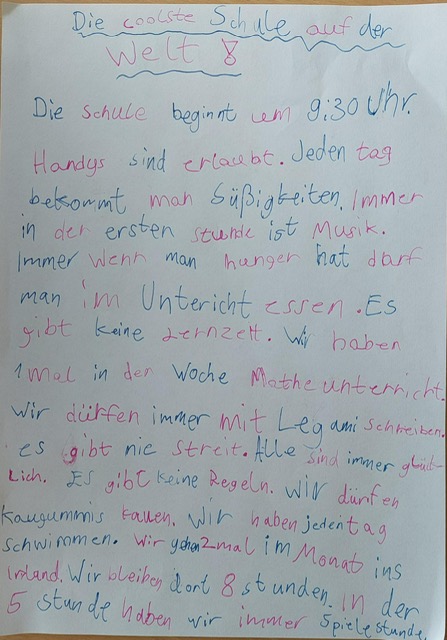 Die coolste Schule auf der
Welt!
Die schule beginnt um 9:30 Uhr.
Handys sind erlaubt. Jeden tag
bekommt man Süßigkeiten. Immer
in der ersten stunde ist Musik.
Immer wenn man hunger hat darf
man im Unterricht essen. Es
gibt keine Lernzeit. Wir haben
1 mal in der Woche Matheunterricht.
Wir dürfen immer mit Legami schreiben.
es gibt nie streit. Alle sind immer glück-
lich. Es gibt keine Regeln. Wir dürfen
Kaugummis kauen. Wir haben jeden tag
schwimmen. Wir gehen 2 mal im Monat ins
Irrland. Wir bleiben dort 8 stunden. in der
5 stunde haben wir immer Spielestunde.